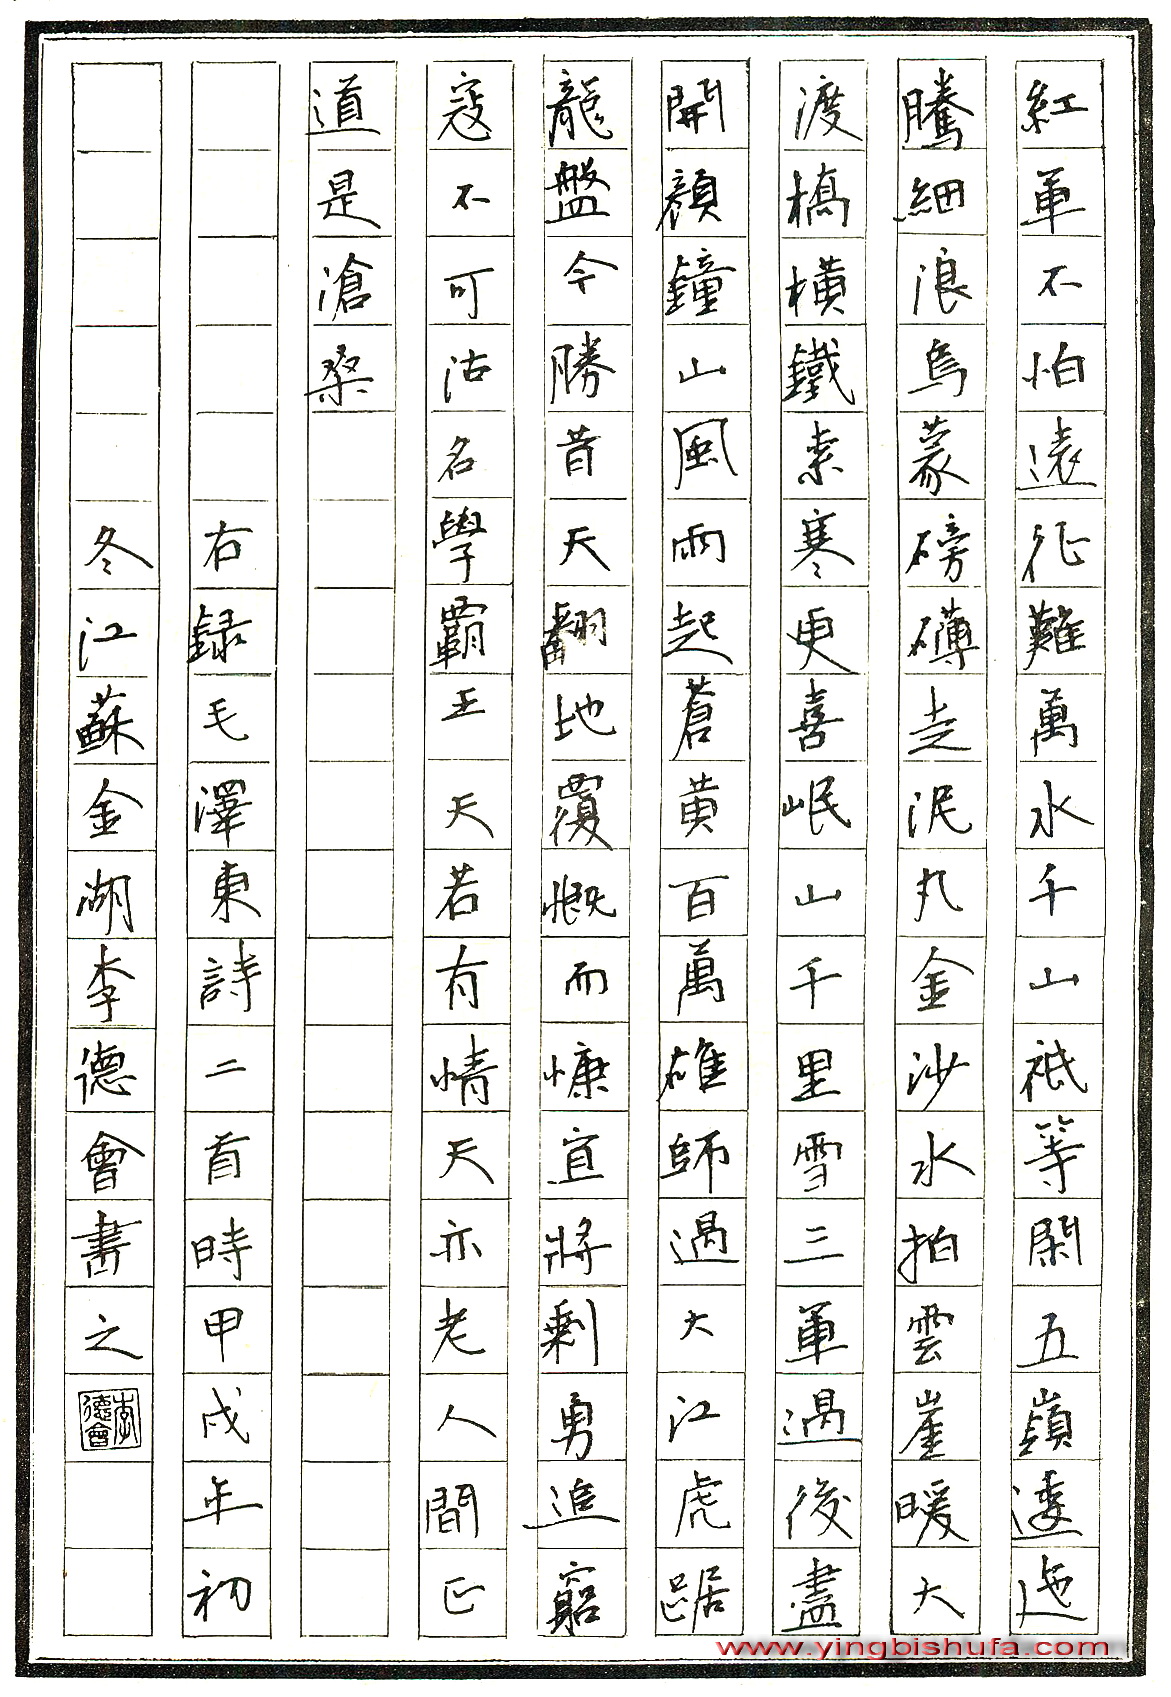 紅軍不怕遠征難萬水千山祗等閑五嶺逶迤
騰細浪烏蒙磅礴走泥丸金沙水拍雲崖暖大
渡橋橫鐵索寒更喜岷山千里雪三軍過後盡
開顏鐘山風雨起蒼黃百萬雄師過大江虎踞
龍盤今勝昔天翻地覆慨而慷宜將剩勇追窮
寇不可沽名學霸王天若有情天亦老人間正
道是滄桑
右録毛澤東詩二首時甲戌年初
冬江蘇金湖李德會書之
李德會
www.yingbishufa.com